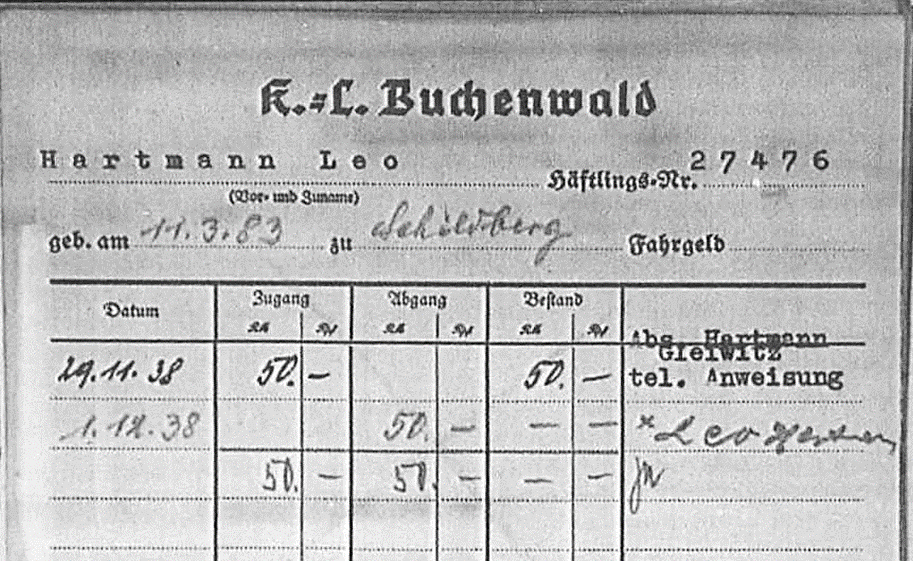 K.=L. Buchenwald
Hartmann Leo Häftlings-Nr. 27476
(Vor- und Zuname)
geb. am 11.3.83 zu Schildberg Fahrgeld
Datum Zugang Abgang Bestand
RM Rpf RM Rpf RM Rpf
Abs. Hartmann
Gleiwitz
29.11.38 50. — 50. — tel. Anweisung
1.12.38 50. — — — × Leo Hartmann
50. — 50. — — —